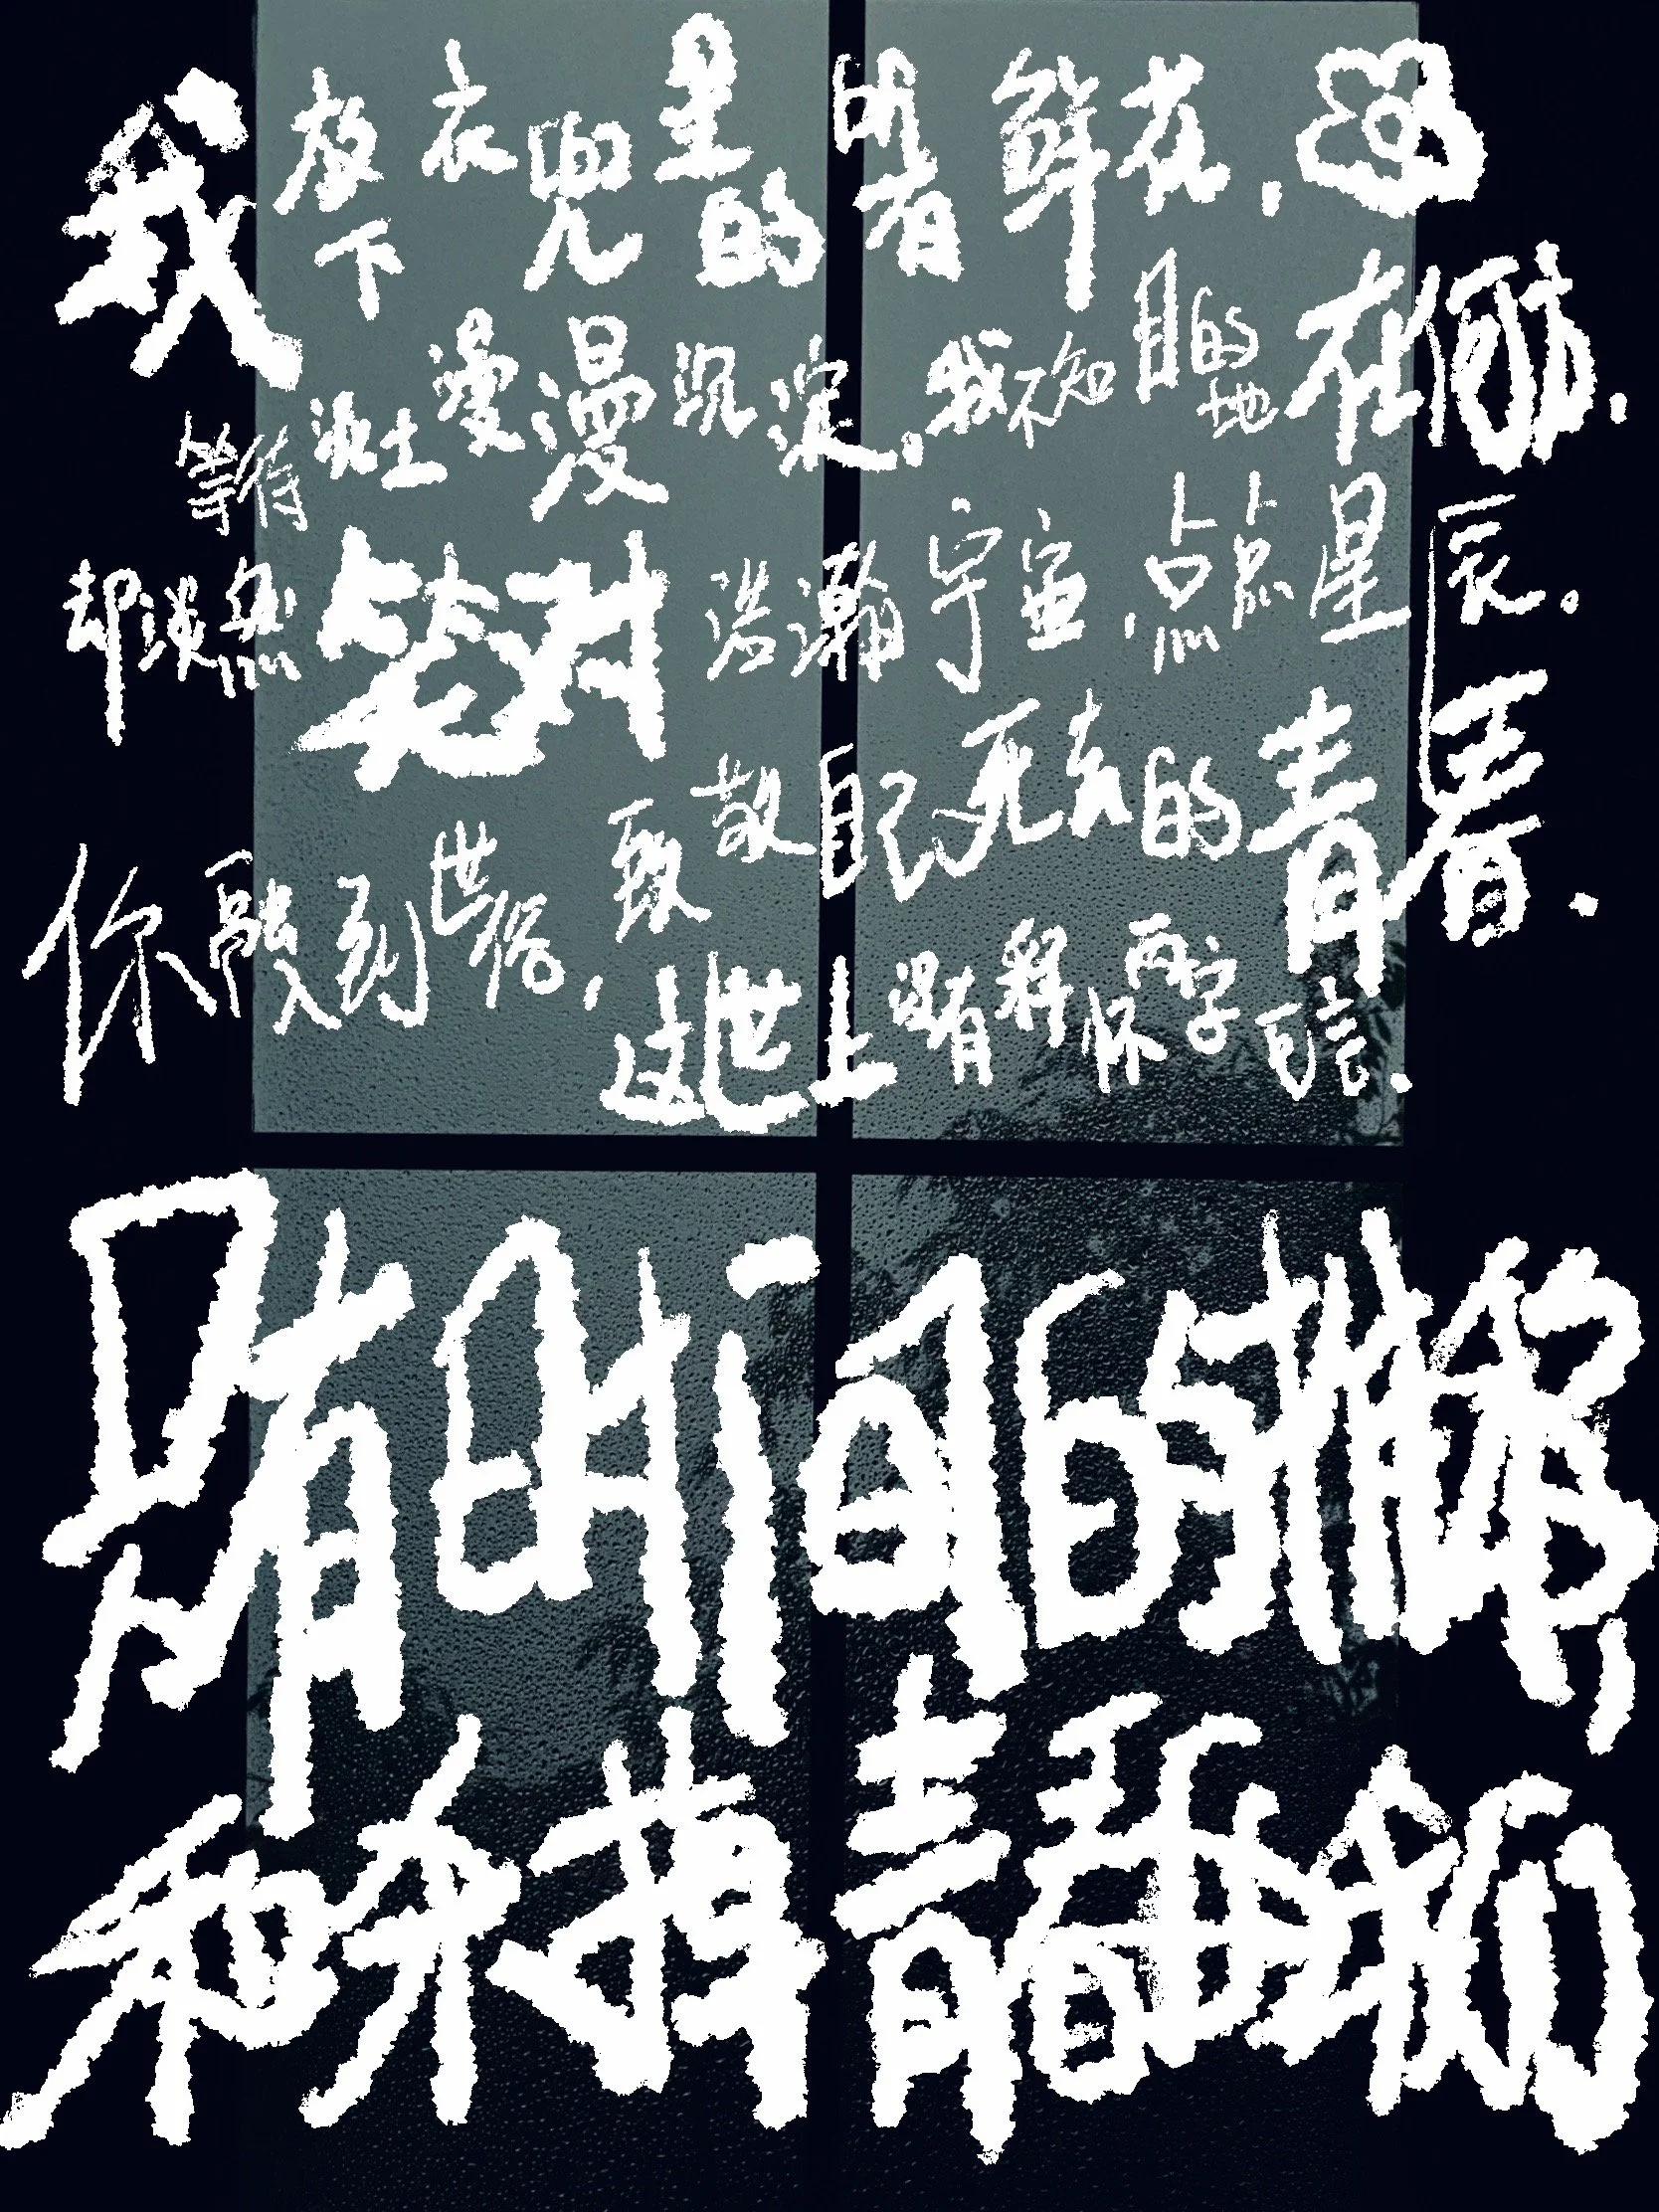 我放下衣兜里的所有鲜花,
等待泥土慢慢沉淀。我不知目的地在何方,
却淡然笑对浩瀚宇宙,点点星辰。
你融入到世俗,致敬自己死去的青春.
这世上没有释怀两字可言.
只有时间的推移,
和不再青春的我们